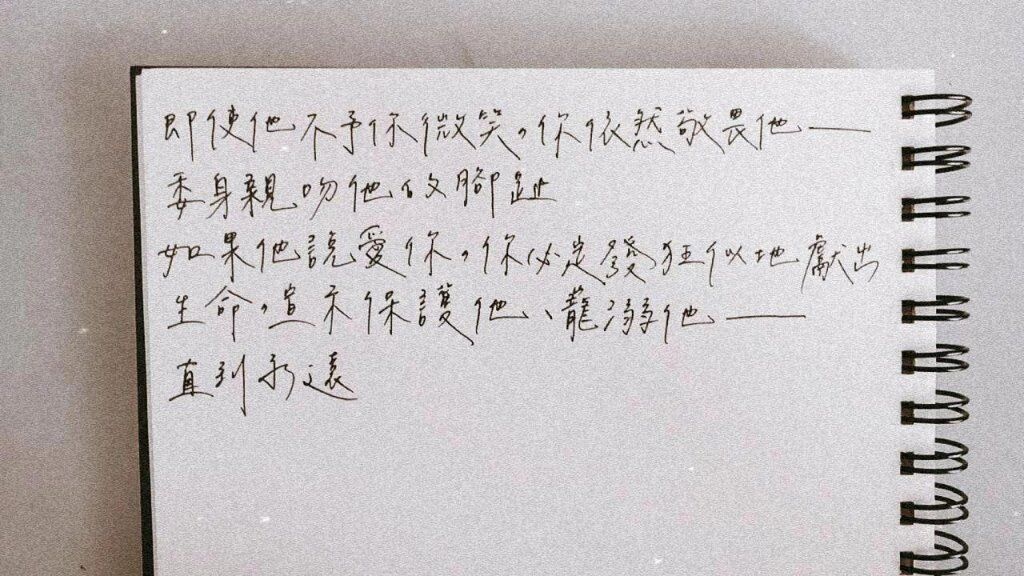 即使他不予你微笑，你依然敬畏他——
委身親吻他的腳趾
如果他說愛你，你必定發狂似地獻出
生命，宣示保護他、寵溺他——
直到永遠